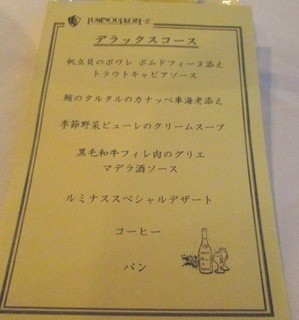 デラックスコース
帆立貝のポワレ ポムドフィーヌ添え
トラウトキャビアソース
鮪のタルタルのカナッペ車海老添え
季節野菜ピューレのクリームスープ
黒毛和牛フィレ肉のグリエ
マデラ酒ソース
ルミナススペシャルデザート
コーヒー
パン